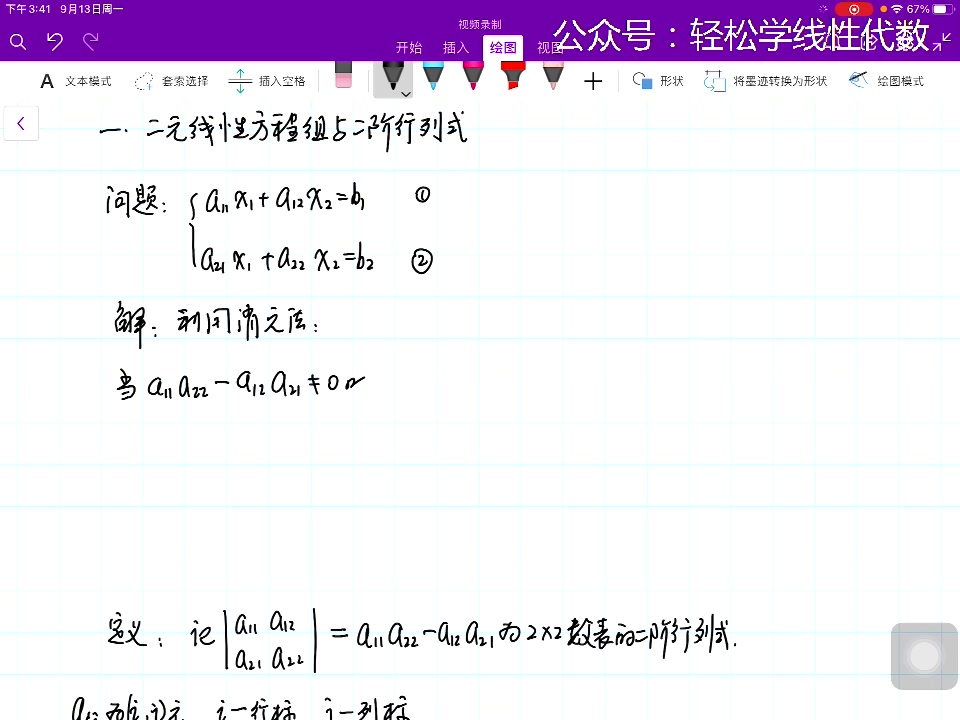 下午3:41 9月13日周一
67%
视频录制
开始 插入 绘图 视图
公众号：轻松学线性代数
文本模式 套索选择 插入空格 形状 将墨迹转换为形状 绘图模式
一. 二元线性方程组与二阶行列式
问题: { a₁₁x₁+a₁₂x₂=b₁ ①
a₂₁x₁+a₂₂x₂=b₂ ②
解: 利用消元法:
当 a₁₁a₂₂-a₁₂a₂₁≠0
定义: 记 |a₁₁ a₁₂
a₂₁ a₂₂| = a₁₁a₂₂-a₁₂a₂₁为2×2数表的二阶行列式.